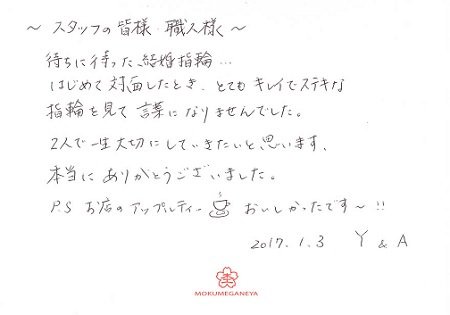 ～ スタッフの皆様 職人様へ ～
待ちに待った、結婚指輪…
はじめて対面したとき、とてもキレイでステキな
指輪を見て言葉になりませんでした。
2人で一生大切にしていきたいと思います。
本当にありがとうございました。
P.S お店のアップルティー おいしかったです～!!
2017.1.3 Y & A
MOKUMEGANEYA